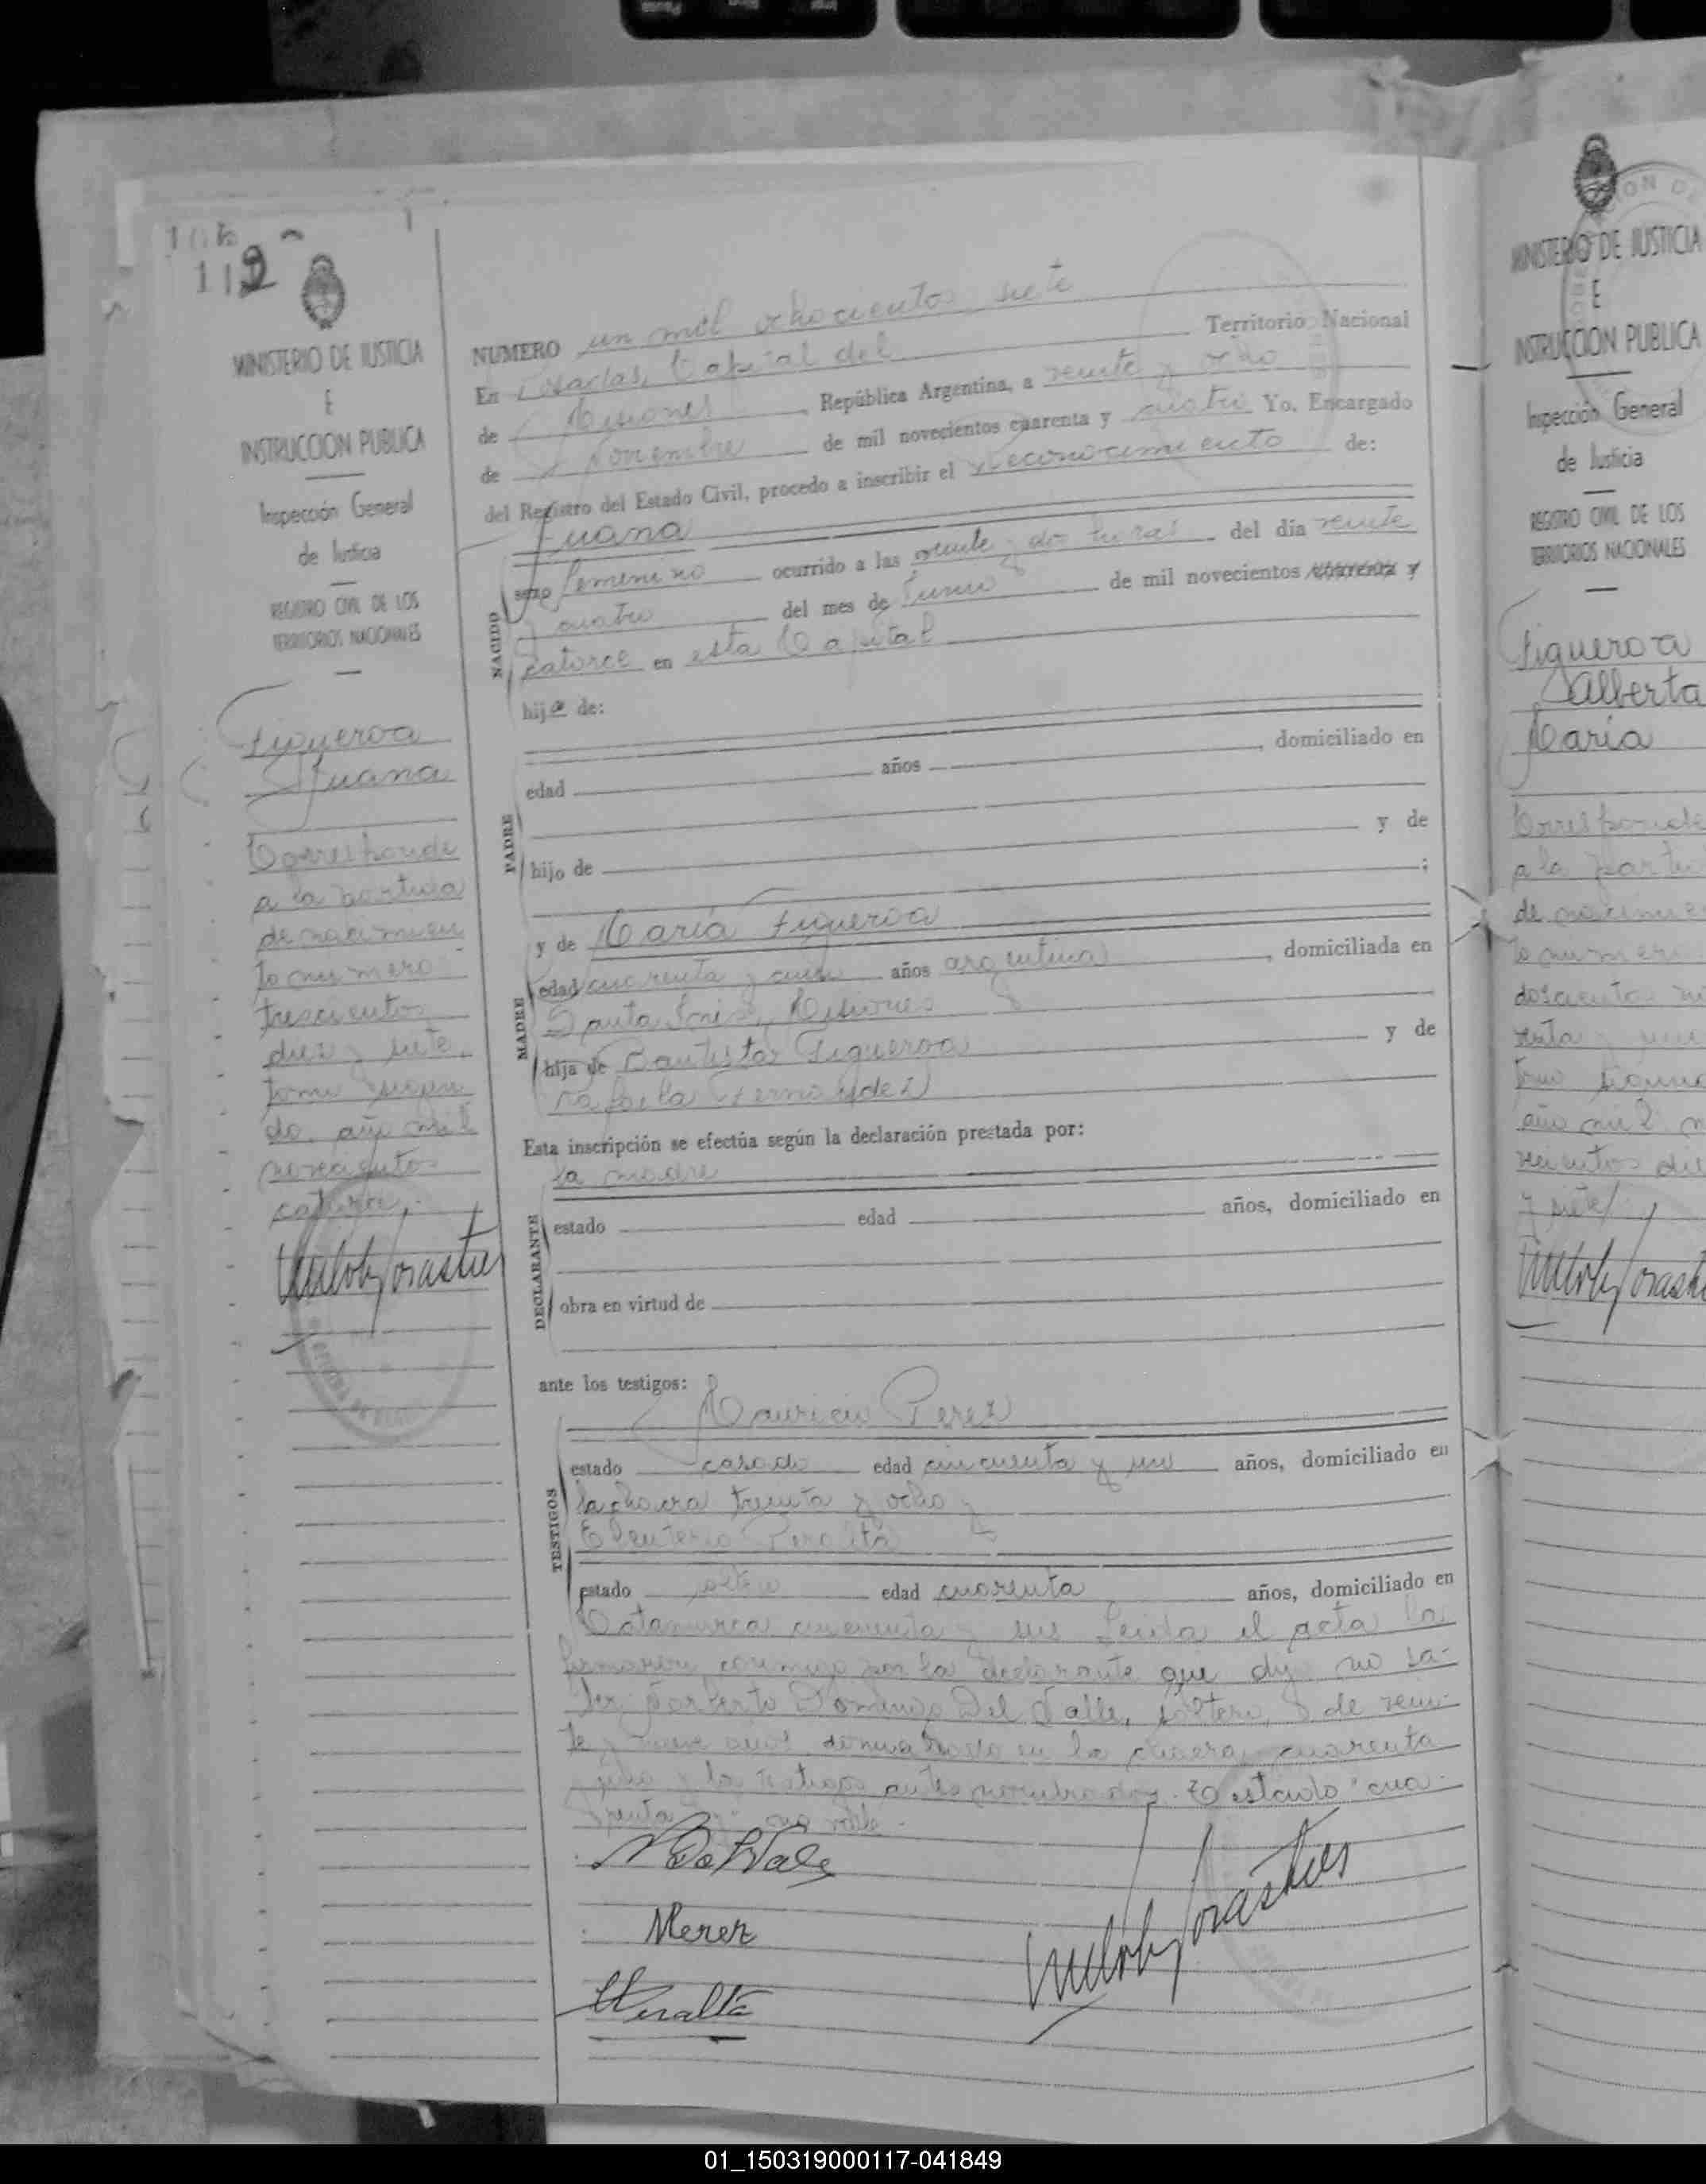 112
MINISTERIO DE JUSTICIA
E
INSTRUCCION PUBLICA
Inspección General
de Justicia
REGISTRO CIVIL DE LOS
TERRITORIOS NACIONALES
Figueroa
Juana
Corresponde
a la partida
de nacimien
to numero
trescientos
diez y siete,
tomo segun
do, año mil
novecientos
catorce.
NUMERO un mil ochocientos siete
En Posadas, Capital del Territorio Nacional
de Misiones, República Argentina, a veinte y ocho
de Noviembre de mil novecientos cuarenta y cuatro Yo, Encargado
del Registro del Estado Civil, procedo a inscribir el reconocimiento de:
NACIDO
Juana
sexo femenino ocurrido a las veinte y dos horas del día veinte
y cuatro del mes de Junio de mil novecientos cuarenta y
catorce en esta Capital
hija de:
PADRE
edad años , domiciliado en
y de
hijo de ;
MADRE
y de María Figueroa
edad cuarenta y cinco años argentina, domiciliada en
Santa Inés, Misiones
hija de Bautista Figueroa y de
Rafaela Fernandez
Esta inscripción se efectúa según la declaración prestada por:
la madre
DECLARANTE
estado edad años, domiciliado en
obra en virtud de
ante los testigos:
TESTIGOS
Mauricio Perez
estado casado edad cincuenta y un años, domiciliado en
la chacra treinta y ocho y
Eleuterio Peralta
estado soltero edad cuarenta años, domiciliado en
Catamarca cincuenta y seis Leida el acta la
firmaron conmigo por la declarante que dijo no sa-
ber: Norberto Domingo Del Valle, soltero, de vein-
te y nueve años domiciliado en la chacra cuarenta
y ocho y los testigos antes nombrados. Testado "cua-
renta y" no vale.
NDelValle
MPerez
EPeralta
MINISTERIO DE JUSTICIA
E
INSTRUCCION PUBLICA
Inspección General
de Justicia
REGISTRO CIVIL DE LOS
TERRITORIOS NACIONALES
Figueroa
Alberta
María
Corresponde
a la parti
de nacimie
to numero
doscientos
tomo segund
año mil n
vecientos die
y siete
01_150319000117-041849